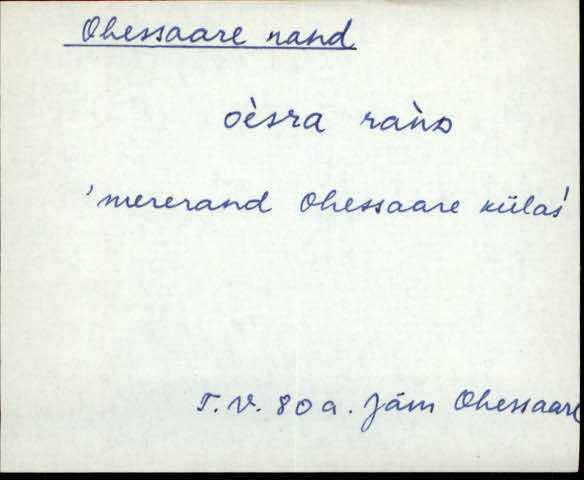 Ohessaare rand
oèsra ràǹᴅ
'mererand Ohessaare külas'
T.V. 80 a. Jäm Ohessaare